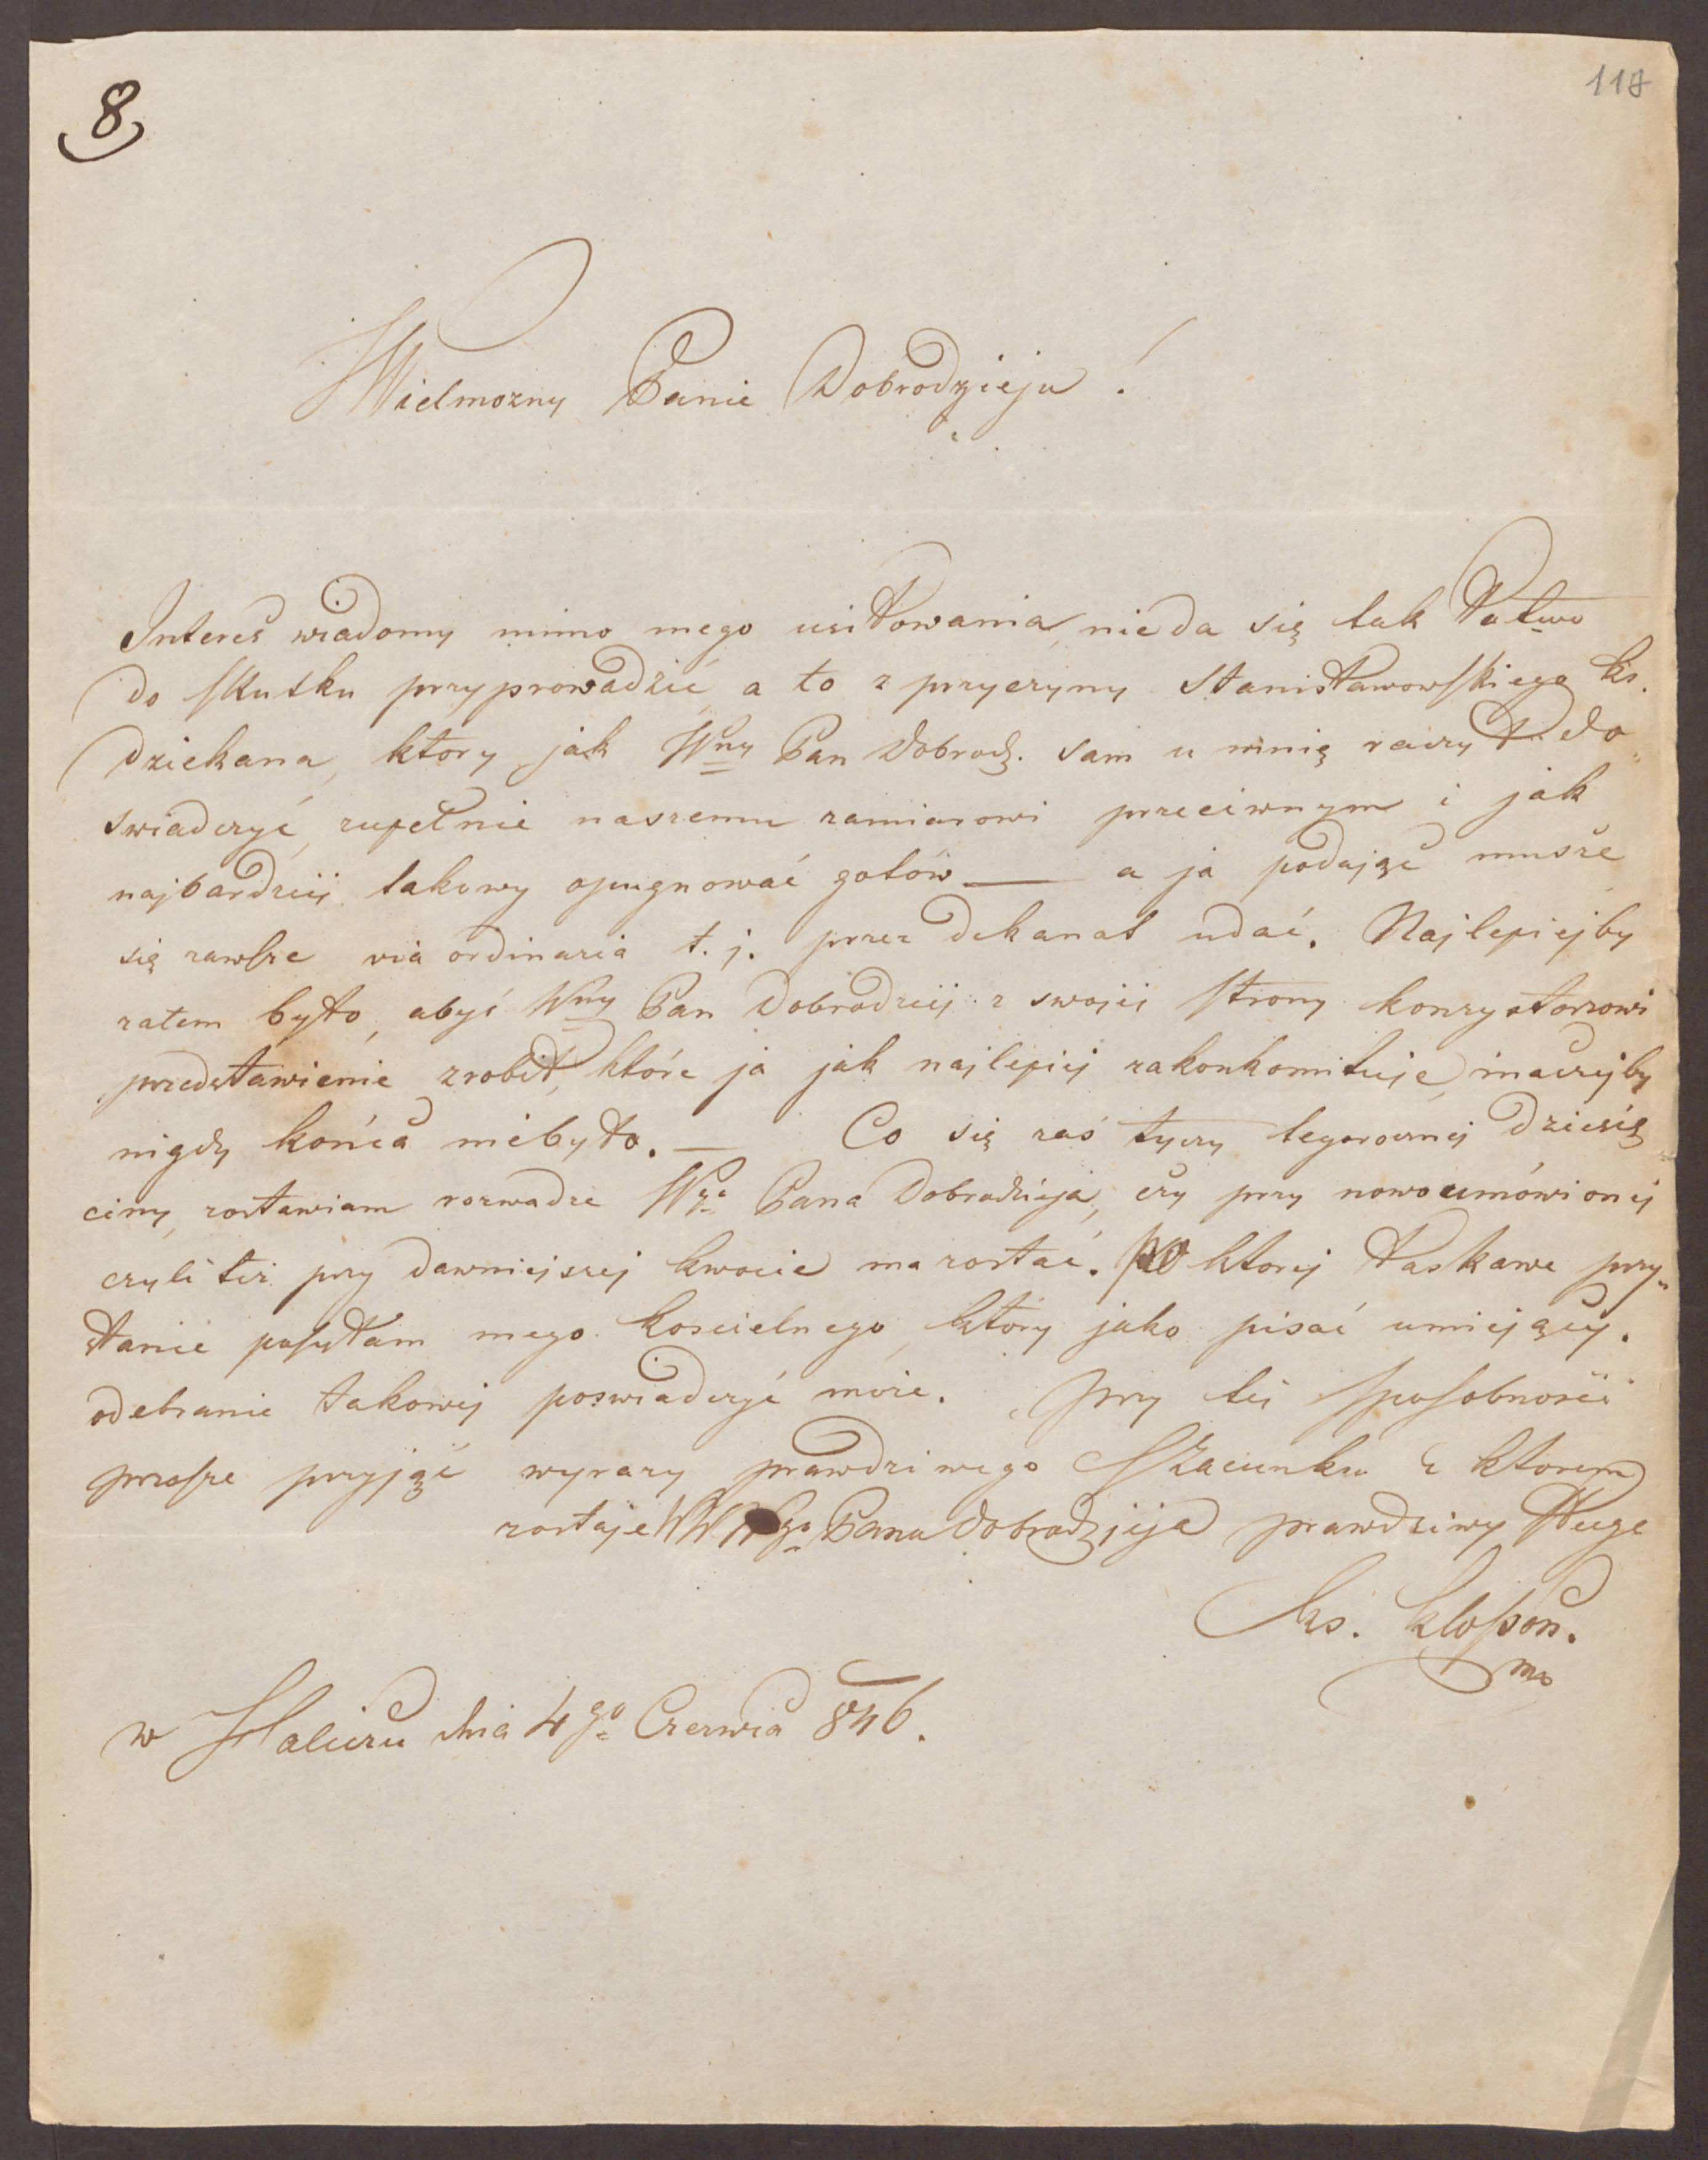 8
118
Wielmozny Panie Dobrodzieju!
Interes wiadomy mimo mego usiłowania, nieda się tak łatwo
do skutku przyprowadzić, a to z przyczyny Stanisławowskiego ks.
Dziekana, ktory jak Wny Pan Dobrodz. sam u mnię raczył do„
swiadczyć, zupełnie naszemu zamiarowi przeciwnym i jak
najbardziej takowy opugnować gotów — a ja podając muszę
się zawsze via ordinaria t. j. przez Dekanat udać. Najlepiejby
zatem było, abyś Wny Pan Dobrodziej z swojej strony konzystorzowi
przedstawienie zrobił, które ja jak najlepiej zakonkomituję, inaczejby
nigdy końca niebyło. — Co się zaś tyczy tegorocznej Dziesię
ciny, zostawiam rozwadze Wgo Pana Dobrodzieja, czy przy nowo umówionej
czyli też przy dawniejszej kwocie ma zostać. Po ktorej łaskawe przy„
słanie posyłam mego koscielnego, który jako pisać umiejący.
odebranie takowej poswiadczyć może. Przy tej sposobności
proszę przyjąć wyrazy prawdziwego szacunku z ktorem
zostaję WW Wgo Pana Dobrodzieja prawdziwy sługa
Ks.
mp
w Haliczu dnia 4go Czerwca 846.